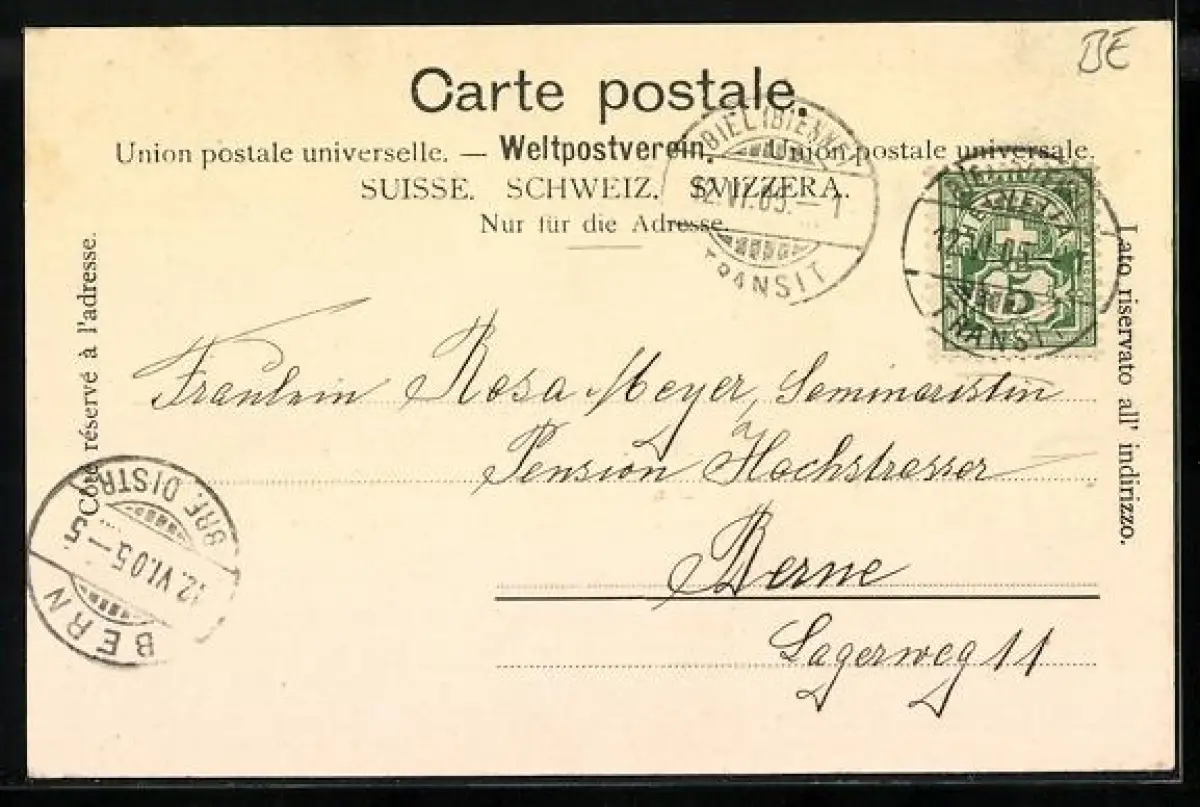 BE
Carte postale.
Union postale universelle. — Weltpostverein. — Union postale universale.
SUISSE. SCHWEIZ. SVIZZERA.
Nur für die Adresse.
BIEL (BIENNE)
12.VI.05.–1
TRANSIT
BIEL (BIENNE)
12.VI.05.–1
TRANSIT
HELVETIA
5
Côté réservé à l'adresse.
Lato riservato all' indirizzo.
Fräulein Rosa Meyer, Seminaristin
Pension Hochstrasser
Berne
Lagerweg 11
BERN
12.VI.05.–5
BRF. DISTR.